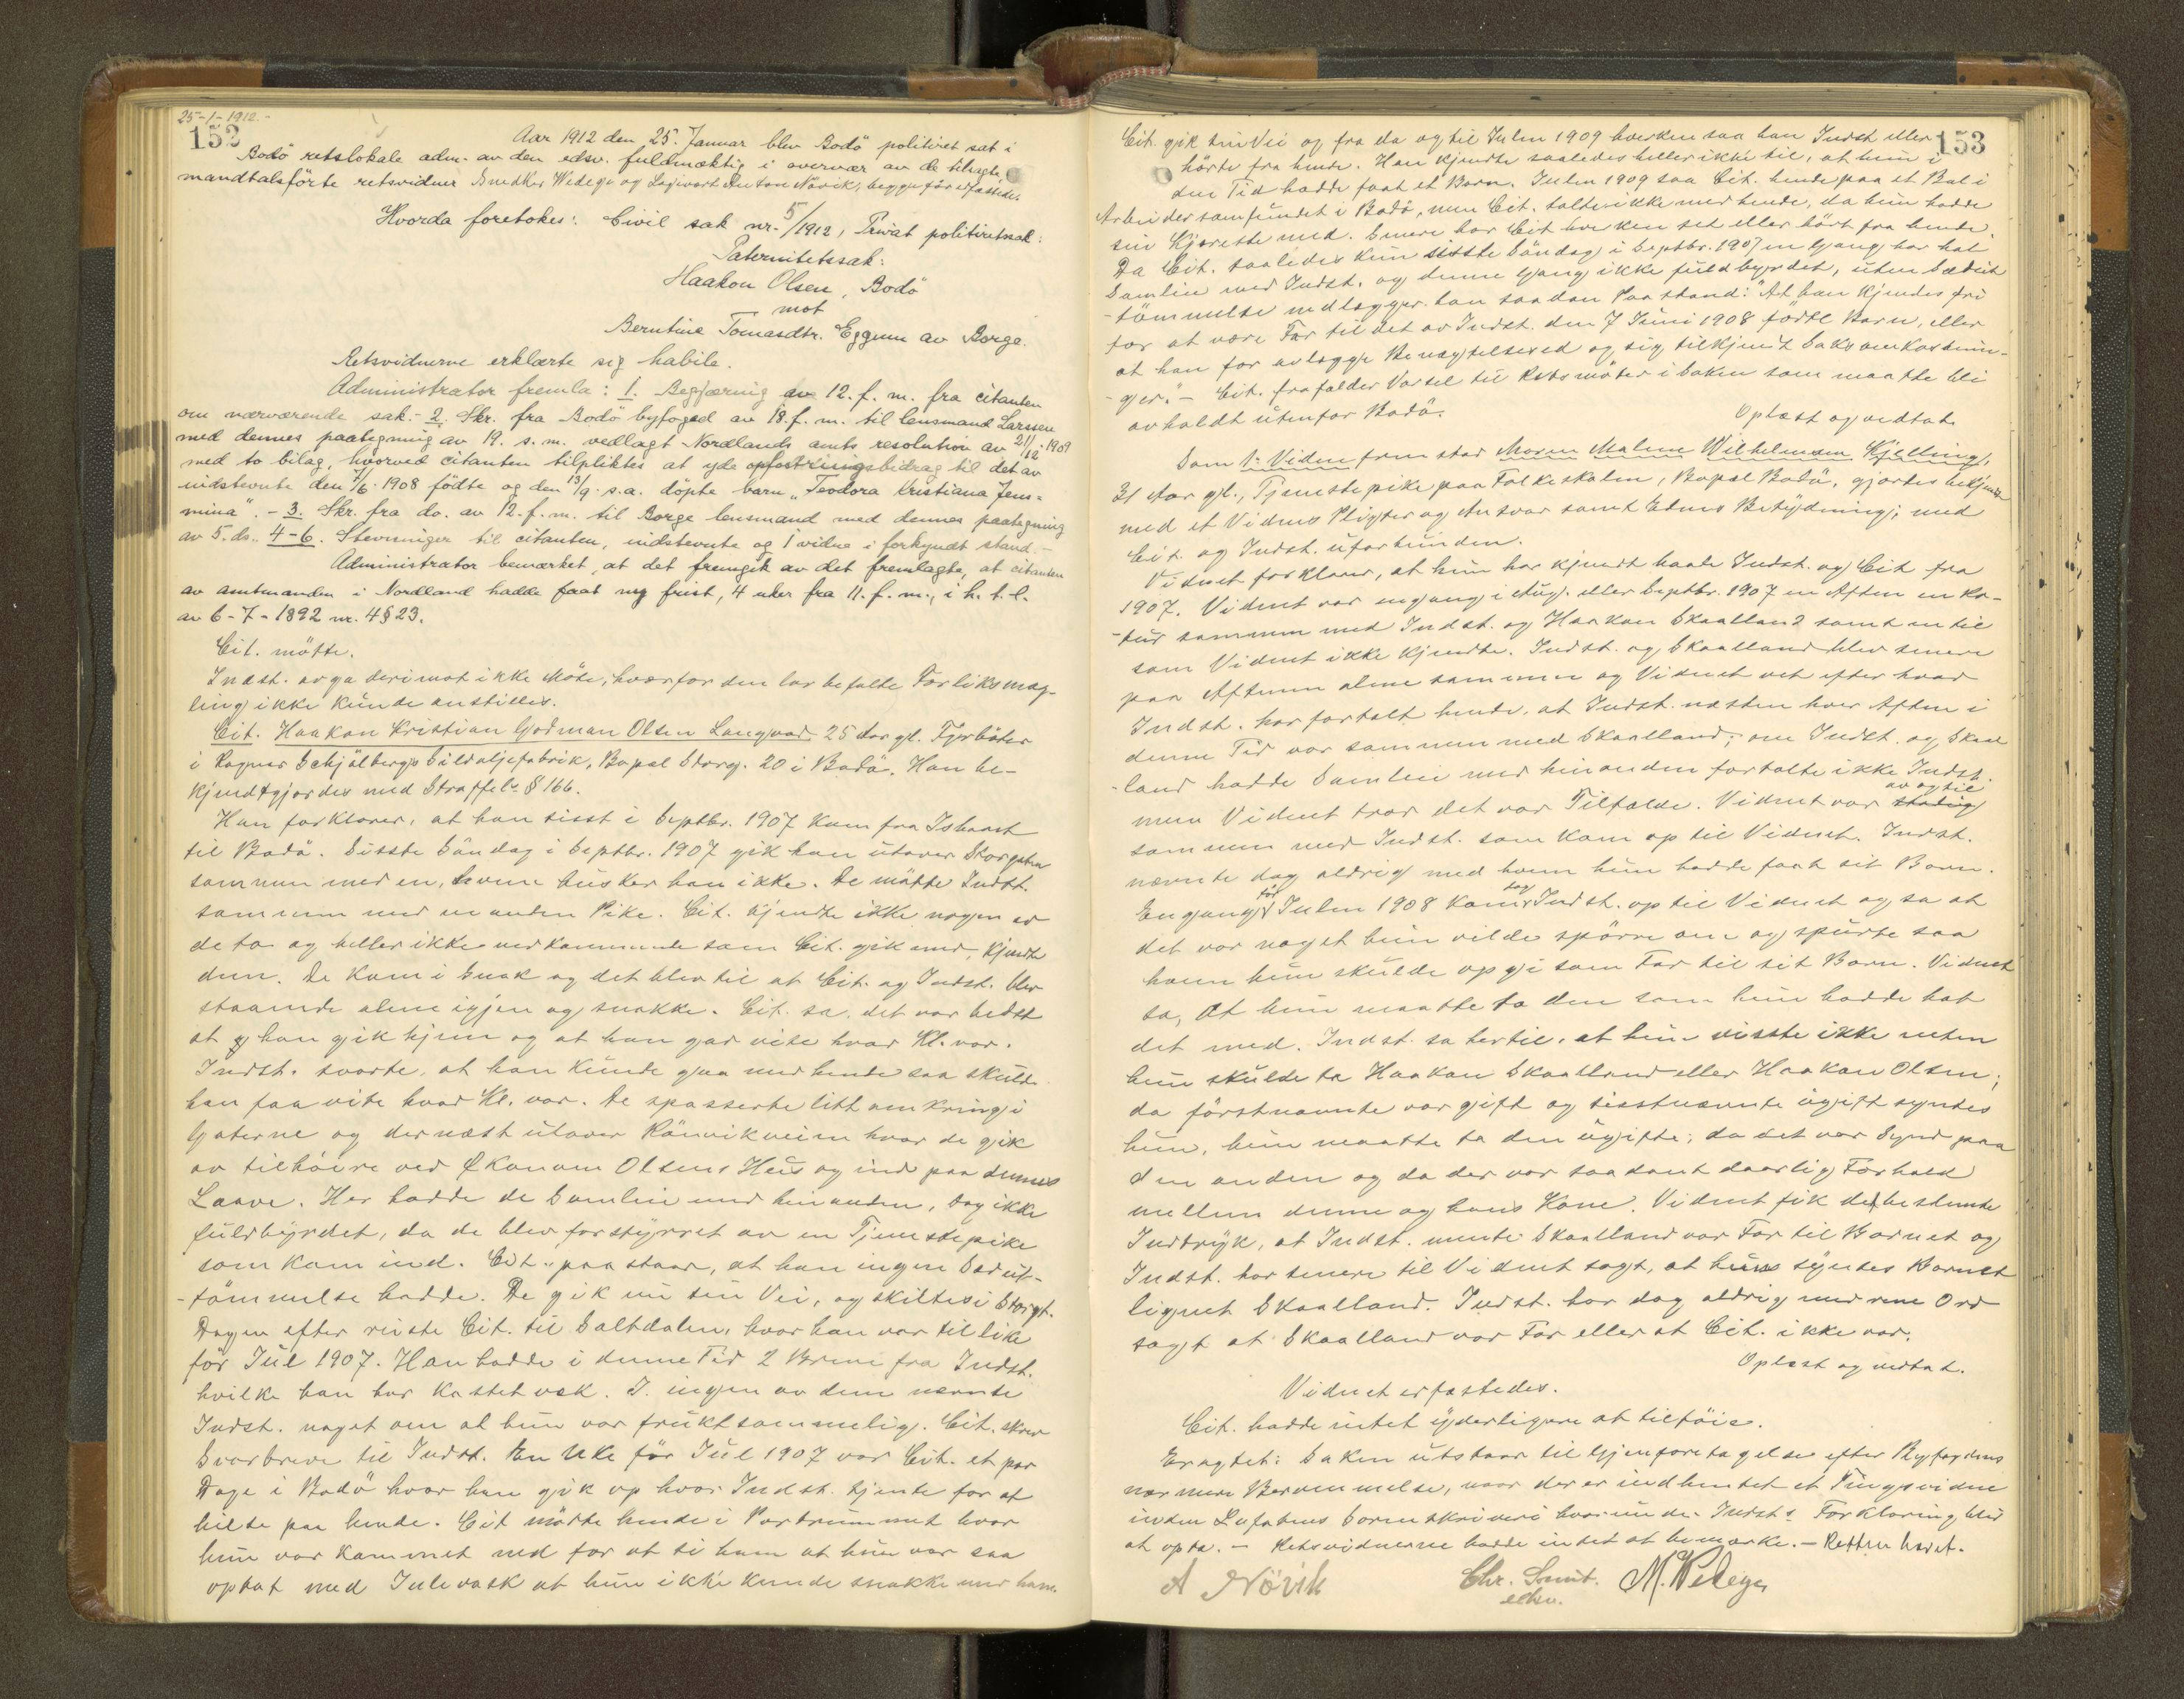 25-1-1912.-
152
Aar 1912 den 25. Januar blev Bodö politiret sat i
Bodö retslokale adm. av den edsv. fuldmægtig i overvær av de tilsagte
mandtalsförte retsvidner Snedker Wedege og Logivert Anton Növik, begge före fastede.
Hvorda foretokes: Civil sak nr. 5/1912, Privat politiretssak:
Paternitetssak:
Haakon Olsen, Bodö
mot
Berntine Tomasdtr. Eggum av Borge.
Retsvidnerne erklærte sig habile.
Administrator fremla: 1. Begjæring av 12. f. m. fra citanten
om nærværende sak.- 2. Skr. fra Bodö byfoged av 18. f. m. til lensmand Larssen
med dennes paategning av 19. s. m. vedlagt Nordlands amts resolution av 21/12-1909
med to bilag, hvorved citanten tilpliktes at yde opfostringsbidrag til det av
indstevnte den 7/6. 1908 födte og den 13/9. s.a. döpte barn "Teodora Kristiana Jens-
mina". - 3. Skr. fra do. av 12. f. m. til Borge lensmand med dennes paategning
av 5. ds.. 4-6. Stevninger til citanten, indstevnte og 1 vidne i forkyndt stand.-
Administrator bemærket, at det fremgik av det fremlagte, at citanten
av amtmanden i Nordland hadde faat ny frist, 4 uker fra 11. f. m., i h. t. l.
av 6-7-1892 nr. 4 § 23.
Cit. mötte.
Indst. avga derimot ikke Möte, hvorfor den lovbefalte Forliksmæg-
ling ikke kunde anstilles.
Cit. Haakon Kristian Godman Olsen Langvad 25 Aar gl. Fyrböter
i Ragnar Schjölbergs Sildoljefabrik, Bopæl Storg. 20 i Bodö. Han be-
kjendtgjordes med Straffel. § 166.
Han forklarer, at han sisst i Septbr. 1907 kom fra Ishavet
til Bodö. Sisste Söndag i Septbr. 1907 gik han utover Storgaten
sammen med en, hvem husker han ikke. De mötte Indst.
sammen med en anden Pike. Cit. kjendte ikke nogen av
de to og heller ikke vedkommende som Cit. gik med, kjendte
dem. De kom i Snak og det blev til at Cit. og Indst. blev
staaende alene igjen og snakke. Cit. sa, det var bedst
at han gik hjem og at han gad vite hvad Kl. var.
Indst. svarte, at han kunde gaa med hende saa skulde
han faa vite hvad Kl. var. De spasserte litt omkring i
Gaterne og dernæst utover Rönvikveien hvor de gik
av tilhöire ved Økonom Olsens Hus og ind paa dennes
Laave. Her hadde de Samleie med hinanden, dog ikke
fuldbyrdet, da de blev forstyrret av en Tjenestepike
som kom ind. Cit. paastaar, at han ingen Sædut-
-tömmelse hadde. De gik nu sin Vei, og skiltes i Storgt.
Dagen efter reiste Cit. til Saltdalen, hvor han var til like
för Jul 1907. Han hadde i denne Tid 2 Breve fra Indst.
hvilke han har kastet væk. I ingen av dem nævnte
Indst. noget om at hun var fruktsommelig. Cit. skrev
Svarbreve til Indst. En Uke för Jul 1907 var Cit. et par
Dage i Bodö hvor han gik op hvor Indst. tjente for at
hilse paa hende. Cit mötte hende i Portrummet hvor
hun var kommet ned for at si ham at hun var saa
optat med Julevask at hun ikke kunde snakke med ham.
153
Cit. gik sin Vei og fra da og til Julen 1909 hverken saa han Indst eller
hörte fra hende. Han kjendte saaledes heller ikke til, at hun i
den Tid hadde faat et Barn. Julen 1909 saa Cit. hende paa et Bal i
Arbeidersamfundet i Bodö, men Cit. talte ikke med hende, da hun hadde
sin Kjæreste med. Senere har Cit hverken set eller hört fra hende.
Da Cit. saaledes kun sisste Söndag i Septbr. 1907 en Gang har hat
Samleie med Indst. og denne Gang ikke fuldbyrdet, uten Sædut
-tömmelse nedlægger han saadan Paastand: "At han kjendes fri
for at være Far til det av Indst. den 7 Juni 1908 födte Barn, eller
at han faar avlægge Benegtelsesed og sig tilkjendt Saksomkostnin-
-ger". - Cit. frafalder Varsel til Retsmöter i Saken som maatte bli
avholdt utenfor Bodö.
Oplæst og vedtat.
Som 1. Vidne fremstod Maren Malene Wilhelmsen Kjelling,
31 Aar gl., Tjenestepike paa Folkeskolen, Bopæl Bodö, gjordes bekjendt
med et Vidnes Pligter og Ansvar samt Edens Betydning; med
Cit. og Indst. uforbunden.
Vidnet forklarer, at hun har kjendt baade Indst. og Cit fra
1907. Vidnet var engang i Aug. eller Septbr. 1907 en Aften en Ro-
-tur sammen med Indst. og Haakon Skaalland samt en til
som Vidnet ikke kjendte. Indst. og Skaalland blev senere
paa Aftenen alene sammen og Vidnet vet efter hvad
Indst. har fortalt hende, at Indst. næsten hver Aften i
denne Tid var sammen med Skaalland; om Indst. og Skaal
-land hadde Samleie med hinanden fortalte ikke Indst.
men Vidnet tror det var Tilfælde. Vidnet var stadig av og til
sammen med Indst. som kom op til Vidnet. Indst.
nævnte dog aldrig med hvem hun hadde faat sit Barn.
Engang för Julen 1908 kom dog Indst. op til Vidnet og sa at
det var noget hun vilde spörre om og spurte saa
hvem hun skulde opgi som Far til sit Barn. Vidnet
sa, at hun maatte ta den som hun hadde hat
det med. Indst. sa hertil, at hun visste ikke enten
hun skulde ta Haakon Skaalland eller Haakon Olsen;
da förstnævnte var gift og sisstnævnte ugift syntes
hun, hun maatte ta den ugifte; da det var Synd paa
den anden og da der var saadant daarlig Forhold
mellem denne og hans Kone. Vidnet fik det bestemte
Indtryk, at Indst. mente Skaalland var Far til Barnet og
Indst. har senere til Vidnet sagt, at hun syntes Barnet
lignet Skaalland. Indst. har dog aldrig med rene Ord
sagt at Skaalland var Far eller at Cit. ikke var.
Oplæst og vedtat.
Vidnet erfastedes.
Cit. hadde intet yderligere at tilföie.
Eragtet: Saken utstaar til Gjenforetagelse efter Byfogdens
nærmere Berammelse, naar der er indhentet et Tingsvidne
inden Lofotens Sorenskriveri hvorunder Indsts Forklaring blir
at opta. - Retsvidnerne hadde intet at bemærke. - Retten hævet.
A Növik
Chr. Smit.
edsv.
M. Wedege